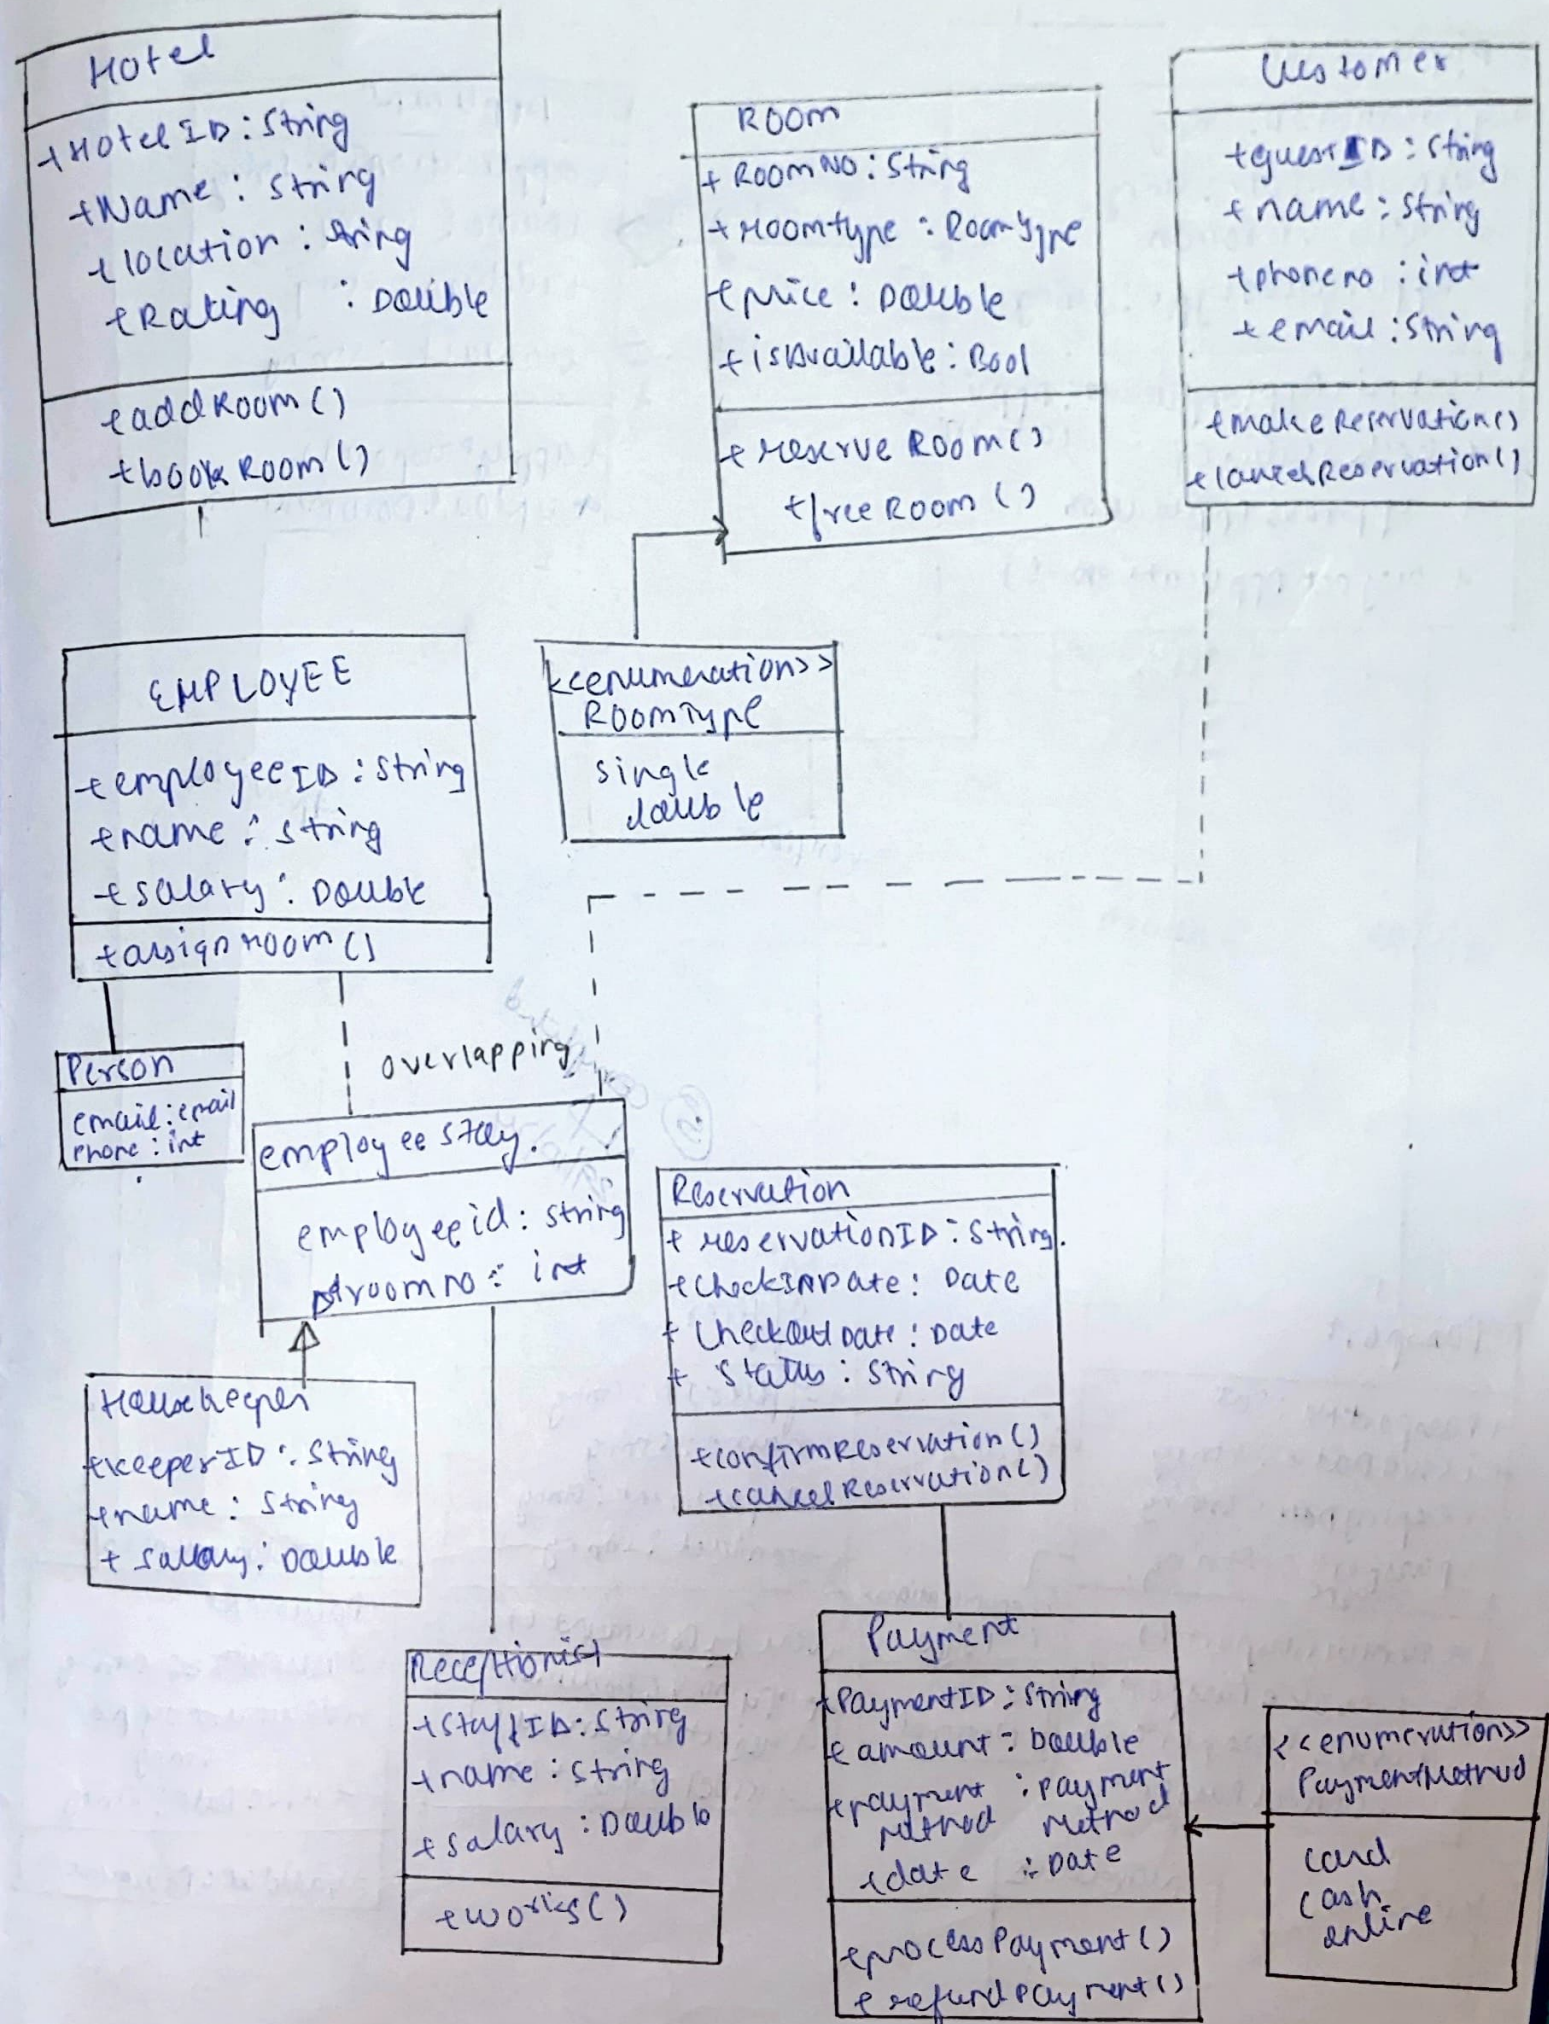 Hotel
+HotelID : String
+Name : String
+location : String
+Rating : Double
+addRoom()
+bookRoom()
Room
+RoomNO : String
+roomtype : RoomType
+price : Double
+isAvailable : Bool
+reserveRoom()
+freeRoom()
Customer
+guestID : String
+name : String
+phoneno : int
+email : String
+makeReservation()
+cancelReservation()
EMPLOYEE
+employeeID : String
+name : String
+salary : Double
+assignroom()
<<enumeration>>
RoomType
single
double
Person
email : email
phone : int
overlapping
employee stay.
employeeid : string
roomno : int
Housekeeper
+keeperID : String
+name : String
+salary : Double
Reservation
+reservationID : String.
+CheckINDate : Date
+CheckoutDate : Date
+Status : String
+confirmReservation()
+cancelReservation()
Receptionist
+StaffID : String
+name : String
+salary : Double
+works()
Payment
+PaymentID : String
+amount : Double
+payment : payment
method method
+date : Date
+processPayment()
+refundPayment()
<<enumeration>>
PaymentMethod
card
cash
online